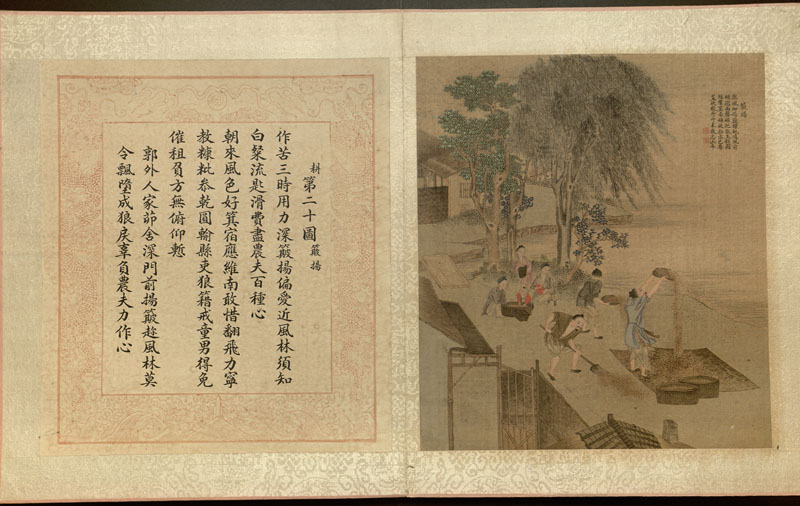 耕第二十圖簸揚
作苦三時用力深簸揚偏愛近風林須知
白粲流匙滑費盡農夫百種心
朝來風色好箕宿應維南敢惜翻飛力寧
教糠粃叅乾圓輸縣吏狼籍戒童男得免
催租負方無俯仰慙
郭外人家茆舍深門前揚簸趂風林莫
令飄墮成狼戾辜負農夫力作心
簸揚